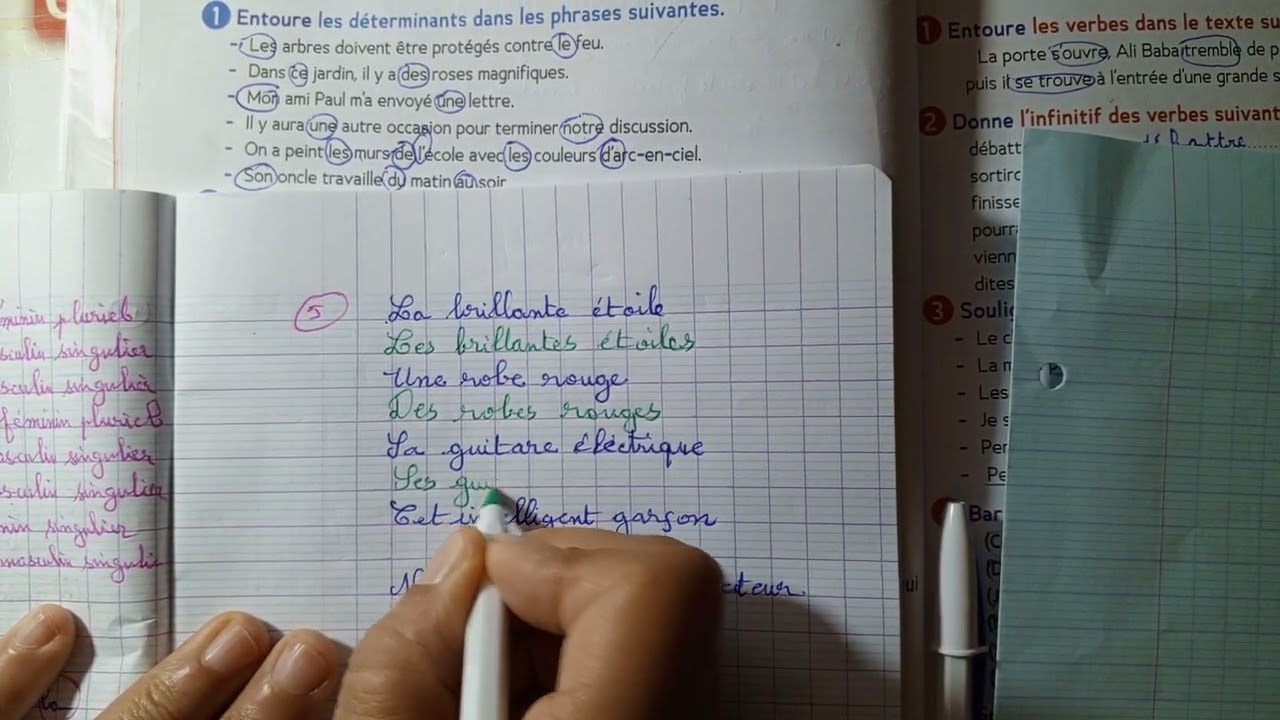 1 Entoure les déterminants dans les phrases suivantes.
- Les arbres doivent être protégés contre le feu.
- Dans ce jardin, il y a des roses magnifiques.
- Mon ami Paul m'a envoyé une lettre.
- Il y aura une autre occasion pour terminer notre discussion.
- On a peint les murs de l'école avec les couleurs d'arc-en-ciel.
- Son oncle travaille du matin au soir
minin pluriel
sculin singulier
sculin singulier
féminin pluriel
asculin singulier
sculin singulier
nin singulier
masculin singuli
5 La brillante étoile
Les brillantes étoiles
Une robe rouge
Des robes rouges
Sa guitare électrique
Ses gui
Cet intelligent garçon
cteur
1 Entoure les verbes dans le texte su
La porte s'ouvre, Ali Baba tremble de p
puis il se trouve à l'entrée d'une grande s
2 Donne l'infinitif des verbes suivant
débatt
sortiro
finisse
pourr
vienn
dites
3 Soulig
- Le c
- La m
- Les
- Je s
- Per
- Pe
Bar
ui